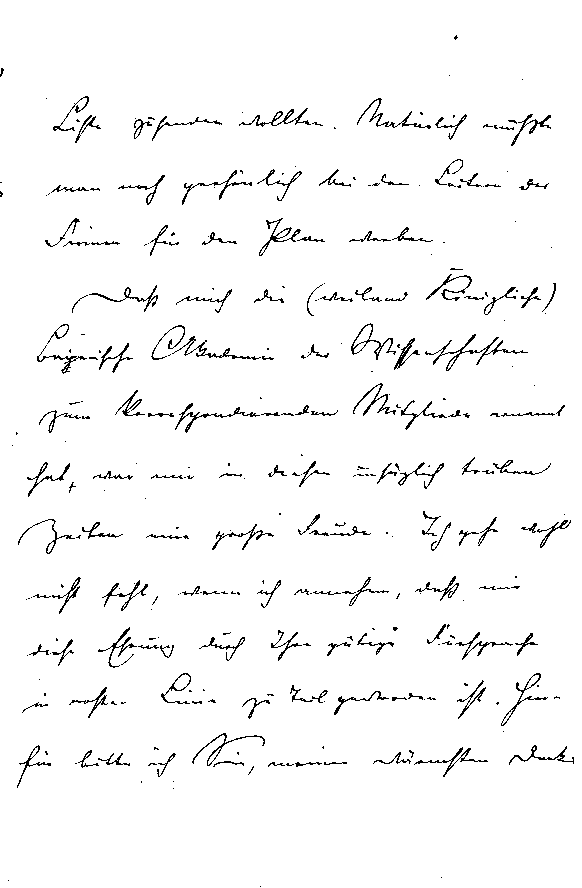 Liste zusenden wollten. Natürlich müßte
man noch persönlich bei den Leitern der
Firmen für den Plan werben.
Daß mich die (weiland Königliche)
Bayerische Akademie der Wissenschaften
zum korrespondierenden Mitgliede ernannt
hat, war mir in diesen unsäglich trüben
Zeiten eine große Freude. Ich gehe wohl
nicht fehl, wenn ich annehme, daß mir
diese Ehrung durch Ihre gütige Fürsprache
in erster Linie zu Teil geworden ist. Hier-
für bitte ich Sie, meinen wärmsten Dank